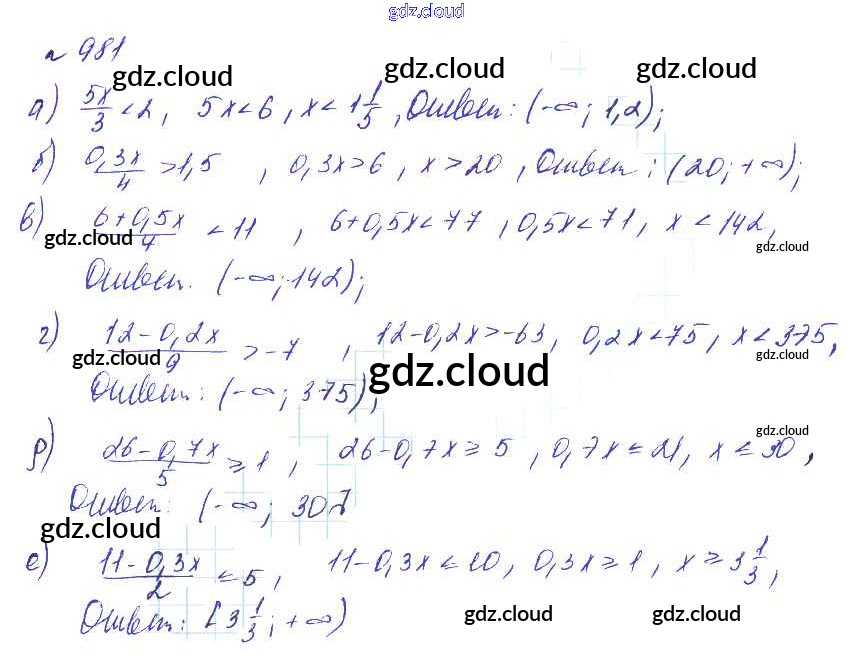 gdz.cloud
№ 981
gdz.cloud gdz.cloud
а) 5x/3 < 2, 5x < 6, x < 1 1/5, Ответ: (-∞; 1,2);
б) 0,3x/4 > 1,5, 0,3x > 6, x > 20, Ответ: (20; +∞);
в) 6+0,5x/4 < 11, 6+0,5x < 77, 0,5x < 71, x < 142,
gdz.cloud gdz.cloud
Ответ: (-∞; 142);
г) 12-0,2x/9 > -7, 12-0,2x > -63, 0,2x < 75, x < 375,
gdz.cloud gdz.cloud gdz.cloud
Ответ: (-∞; 375);
gdz.cloud
д) 26-0,7x/5 ≥ 1, 26-0,7x ≥ 5, 0,7x ≤ 21, x ≤ 30,
Ответ: (-∞; 30]
gdz.cloud
е) 11-0,3x/2 ≤ 5, 11-0,3x ≤ 10, 0,3x ≥ 1, x ≥ 3 1/3,
Ответ: [3 1/3; +∞)
gdz.cloud gdz.cloud